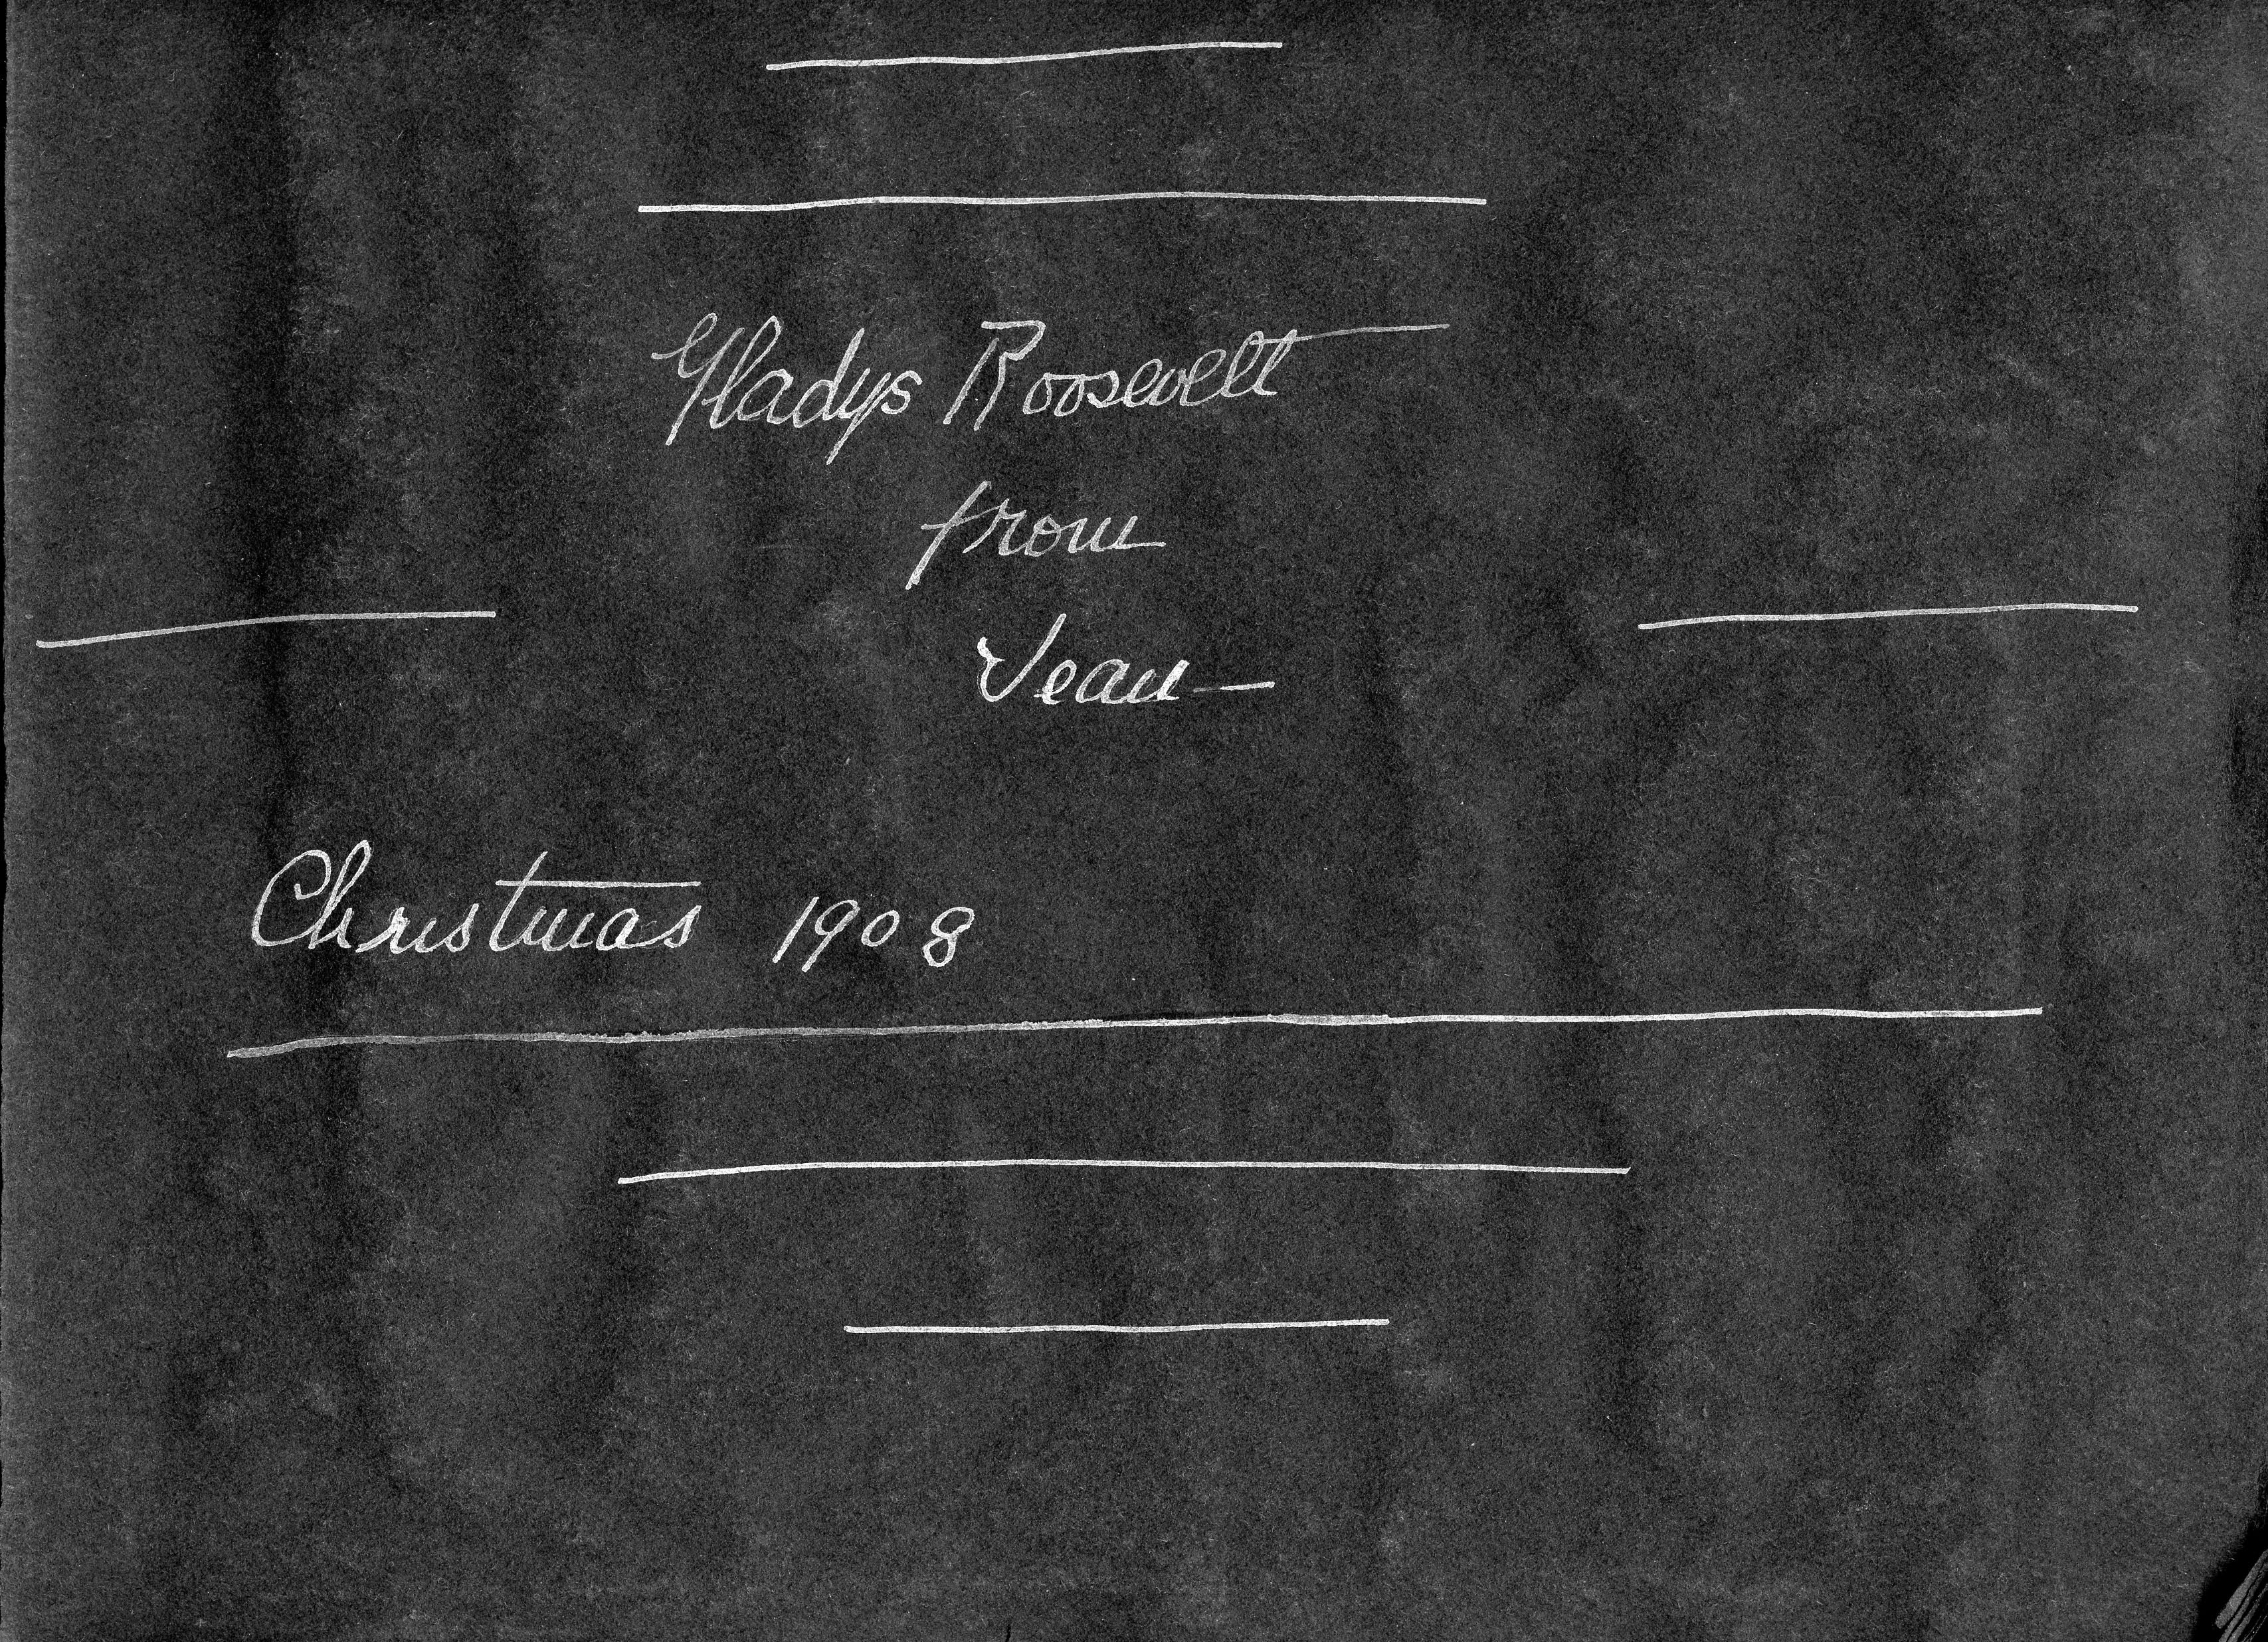 Gladys Roosevelt
from
Jean
Christmas 1908